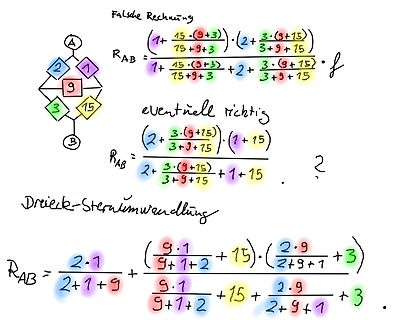 Falsche Rechnung
A
2 1
9
3 15
B
R_AB = ((1 + 15·(9+3)/(15+9+3)) · (2 + 3·(9+15)/(3+9+15))) / (1 + 15·(9+3)/(15+9+3) + 2 + 3·(9+15)/(3+9+15)) · f
eventuell richtig
R_AB = ((2 + 3·(9+15)/(3+9+15)) · (1+15)) / (2 + 3·(9+15)/(3+9+15) + 1 + 15) . ?
Dreieck-Sternumwandlung
R_AB = 2·1/(2+1+9) + ((9·1/(9+1+2) + 15) · (2·9/(2+9+1) + 3)) / (9·1/(9+1+2) + 15 + 2·9/(2+9+1) + 3) .